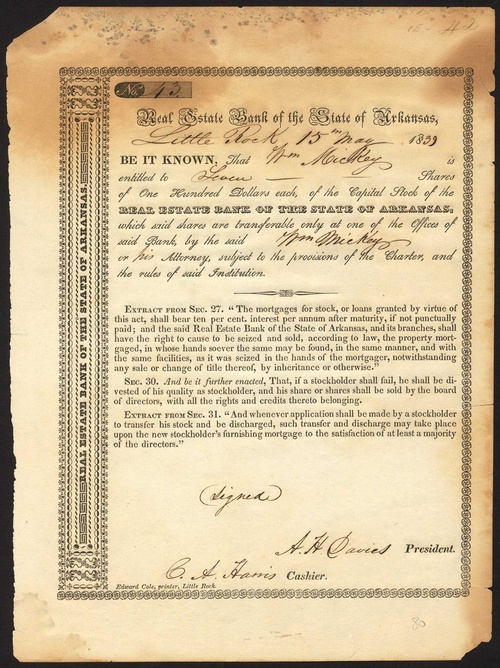 42
No. 43.
REAL ESTATE BANK OF THE STATE OF ARKANSAS.
Real Estate Bank of the State of Arkansas,
Little Rock 15th May 1839
BE IT KNOWN, That Wm Mickey is
entitled to Seven — Shares
of One Hundred Dollars each, of the Capital Stock of the
REAL ESTATE BANK OF THE STATE OF ARKANSAS,
which said shares are transferable only at one of the Offices of
said Bank, by the said Wm Mickey
or his Attorney, subject to the provisions of the Charter, and
the rules of said Institution.
EXTRACT FROM SEC. 27. "The mortgages for stock, or loans granted by virtue of
this act, shall bear ten per cent. interest per annum after maturity, if not punctually
paid; and the said Real Estate Bank of the State of Arkansas, and its branches, shall
have the right to cause to be seized and sold, according to law, the property mort-
gaged, in whose hands soever the same may be found, in the same manner, and with
the same facilities, as it was seized in the hands of the mortgager, notwithstanding
any sale or change of title thereof, by inheritance or otherwise."
SEC. 30. And be it further enacted, That, if a stockholder shall fail, he shall be di-
vested of his quality as stockholder, and his share or shares shall be sold by the board
of directors, with all the rights and credits thereto belonging.
EXTRACT FROM SEC. 31. "And whenever application shall be made by a stockholder
to transfer his stock and be discharged, such transfer and discharge may take place
upon the new stockholder's furnishing mortgage to the satisfaction of at least a majority
of the directors."
(Signed)
A. H. Davies President.
C. A. Harris Cashier.
Edward Cole, printer, Little Rock.
80